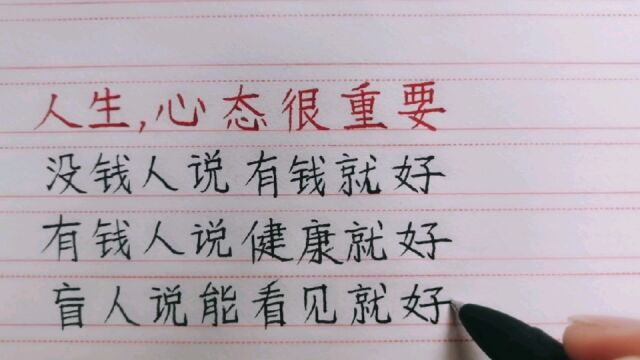 人生,心态很重要
没钱人说有钱就好
有钱人说健康就好
盲人说能看见就好